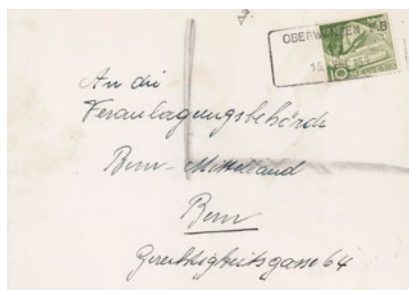 An die
Veranlagungsbehörde
Bern-Mittelland
Bern
Gerechtigkeitsgasse 64
10